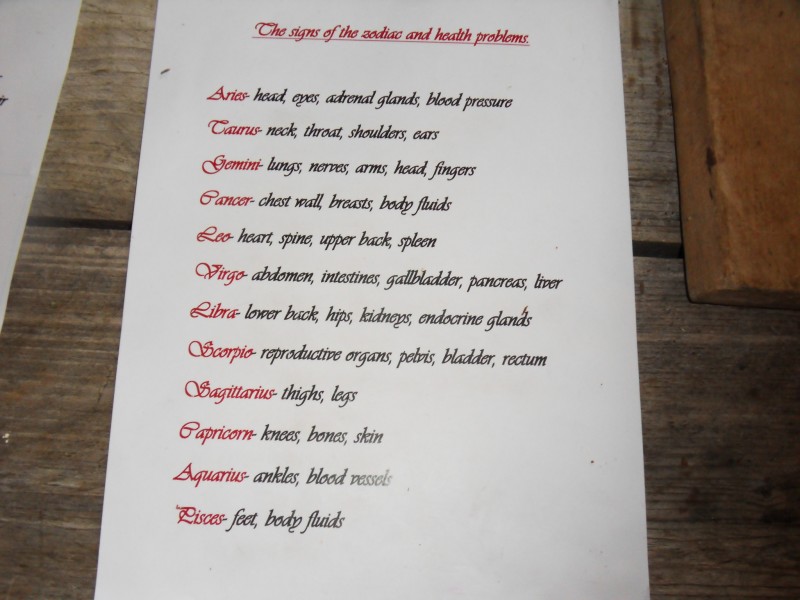 The signs of the zodiac and health problems.
Aries- head, eyes, adrenal glands, blood pressure
Taurus- neck, throat, shoulders, ears
Gemini- lungs, nerves, arms, head, fingers
Cancer- chest wall, breasts, body fluids
Leo- heart, spine, upper back, spleen
Virgo- abdomen, intestines, gallbladder, pancreas, liver
Libra- lower back, hips, kidneys, endocrine glands
Scorpio- reproductive organs, pelvis, bladder, rectum
Sagittarius- thighs, legs
Capricorn- knees, bones, skin
Aquarius- ankles, blood vessels
Pisces- feet, body fluids